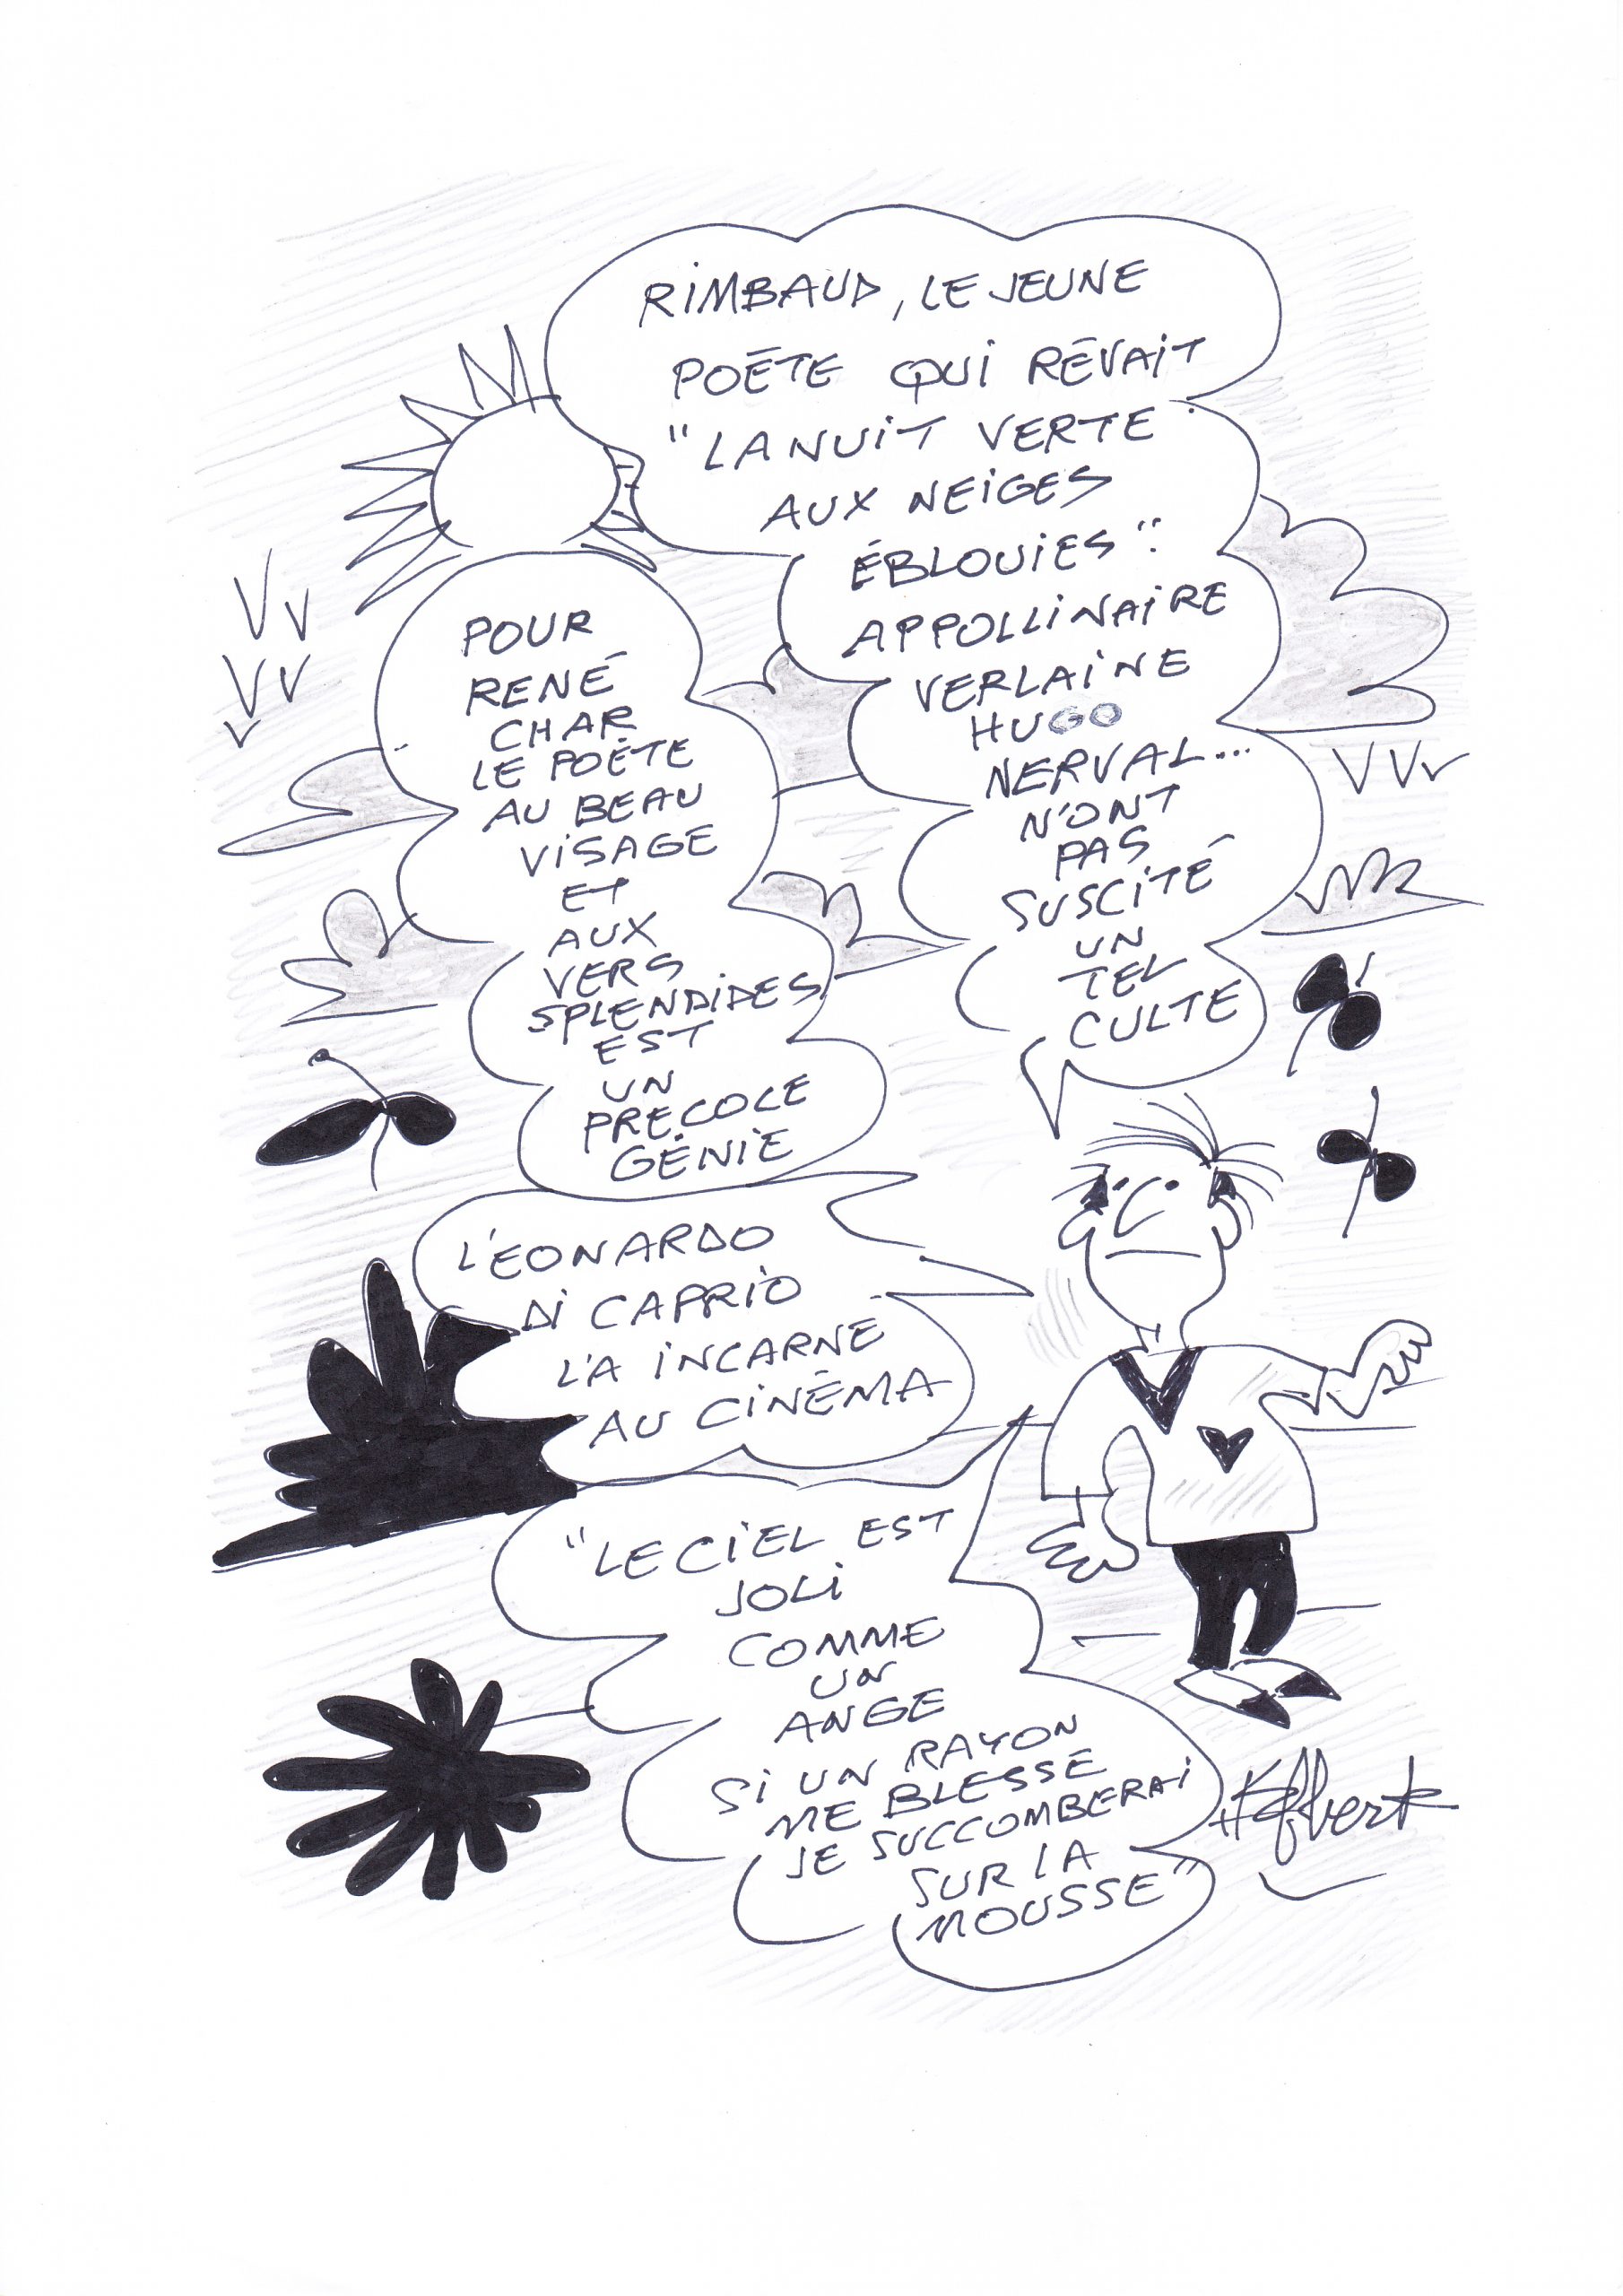 RIMBAUD, LE JEUNE
POÈTE QUI RÊVAIT
"LA NUIT VERTE
AUX NEIGES
ÉBLOUIES".
APPOLLINAIRE
VERLAINE
HUGO
NERVAL...
N'ONT
PAS
SUSCITÉ
UN
TEL
CULTE
POUR
RENÉ
CHAR
LE POÈTE
AU BEAU
VISAGE
ET
AUX
VERS
SPLENDIDES
EST
UN
PRECOCE
GÉNIE
L'EONARDO
DI CAPRIO
L'A INCARNÉ
AU CINÉMA
"LE CIEL EST
JOLI
COMME
UN
ANGE
SI UN RAYON
ME BLESSE
JE SUCCOMBERAI
SUR LA
MOUSSE"